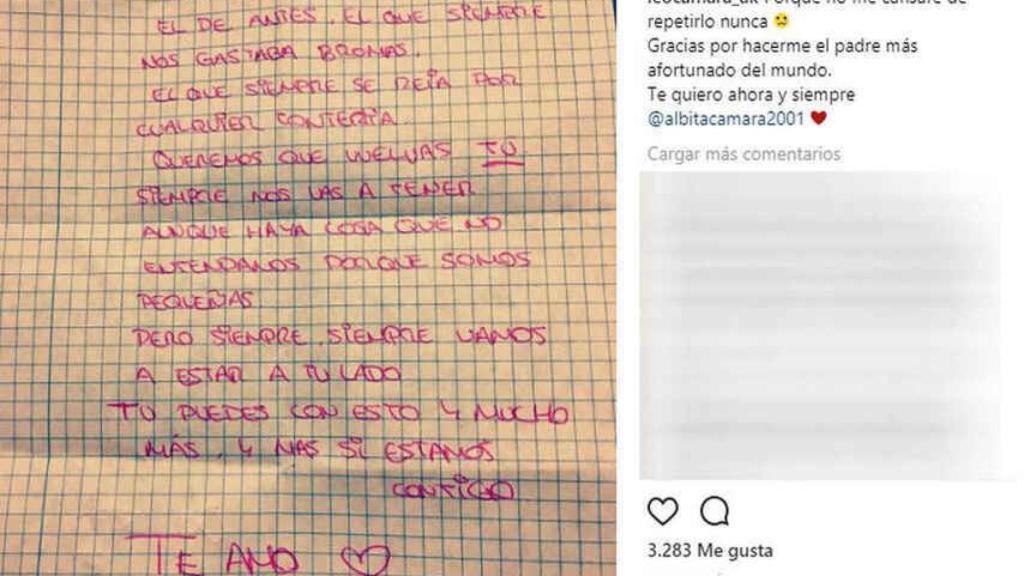 EL DE ANTES. EL QUE SIEMPRE
NOS GASTABA BROMAS.
EL QUE SIEMPRE SE REIA POR
CUALQUIER TONTERIA.
QUEREMOS QUE VUELVAS TÚ
SIEMPRE NOS VAS A TENER
AUNQUE HAYA COSA QUE NO
ENTENDAMOS PORQUE SOMOS
PEQUEÑAS
PERO SIEMPRE, SIEMPRE VAMOS
A ESTAR A TU LADO
TÚ PUEDES CON ESTO Y MUCHO
MÁS. Y MAS SI ESTAMOS
CONTIGO.
TE AMO
leocamara_uk Porque no me cansaré de
repetirlo nunca
Gracias por hacerme el padre más
afortunado del mundo.
Te quiero ahora y siempre
@albitacamara2001
Cargar más comentarios
3.283 Me gusta